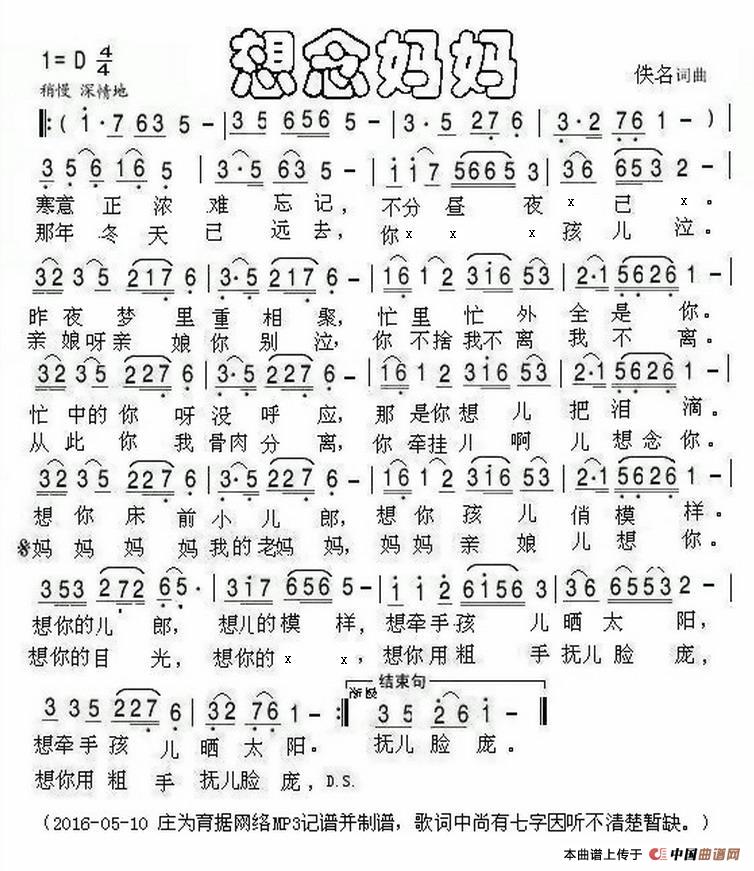 想念妈妈
1=D 4/4
稍慢 深情地
佚名词曲
‖:( i·7 63 5 - | 35 656 5 - | 3·5 27 6 | 3·2 76 1 - ) |
3 5 6 16 5 | 3·5 63 5 - | i i i7 5665 3 | 36 653 2 - |
寒意正浓难忘记，不分昼夜x已x。
那年冬天已远去，你x x x孩儿泣。
32 35 217 6 | 3·5 217 6 - | 16 12 3i6 53 | 2·1 5626 1 - |
昨夜梦里重相聚，忙里忙外全是你。
亲娘呀亲娘你别泣，你不捨我不离我不离。
32 35 227 6 | 3·5 227 6 - | 16 12 3i6 53 | 2·1 5626 1 - |
忙中的你呀没呼应，那是你想儿把泪滴。
从此你我骨肉分离，你牵挂儿啊儿想念你。
32 35 227 6 | 3·5 227 6 - | 16 12 3i6 53 | 2·1 5626 1 - |
想你床前小儿郎，想你孩儿俏模样。
妈妈妈妈我的老妈妈，妈妈亲娘儿想你。
353 272 65· | 3i7 656 5 - | i i 2 6i56 3 | 36 6553 2 - |
想你的儿郎，想儿的模样，想牵手孩儿晒太阳，
想你的目光，想你的x x，想你用粗手抚儿脸庞，
渐慢 结束句
3 35 227 6 | 32 76 1 - :‖ 35 26 i - ‖
想牵手孩儿晒太阳。 抚儿脸庞。
想你用粗手抚儿脸庞，D.S.
（2016-05-10 庄为育据网络MP3记谱并制谱，歌词中尚有七字因听不清楚暂缺。）
本曲谱上传于 中国曲谱网